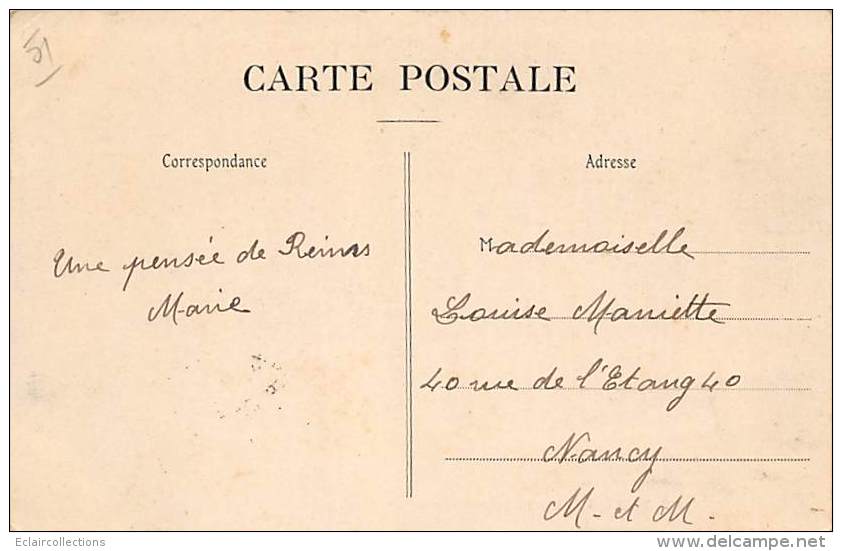 51
CARTE POSTALE
Correspondance
Adresse
Une pensée de Reims
Marie
Mademoiselle
Louise Mariette
40 rue de l'Etang 40
Nancy
M- et M.
Eclaircollections
www.delcampe.net